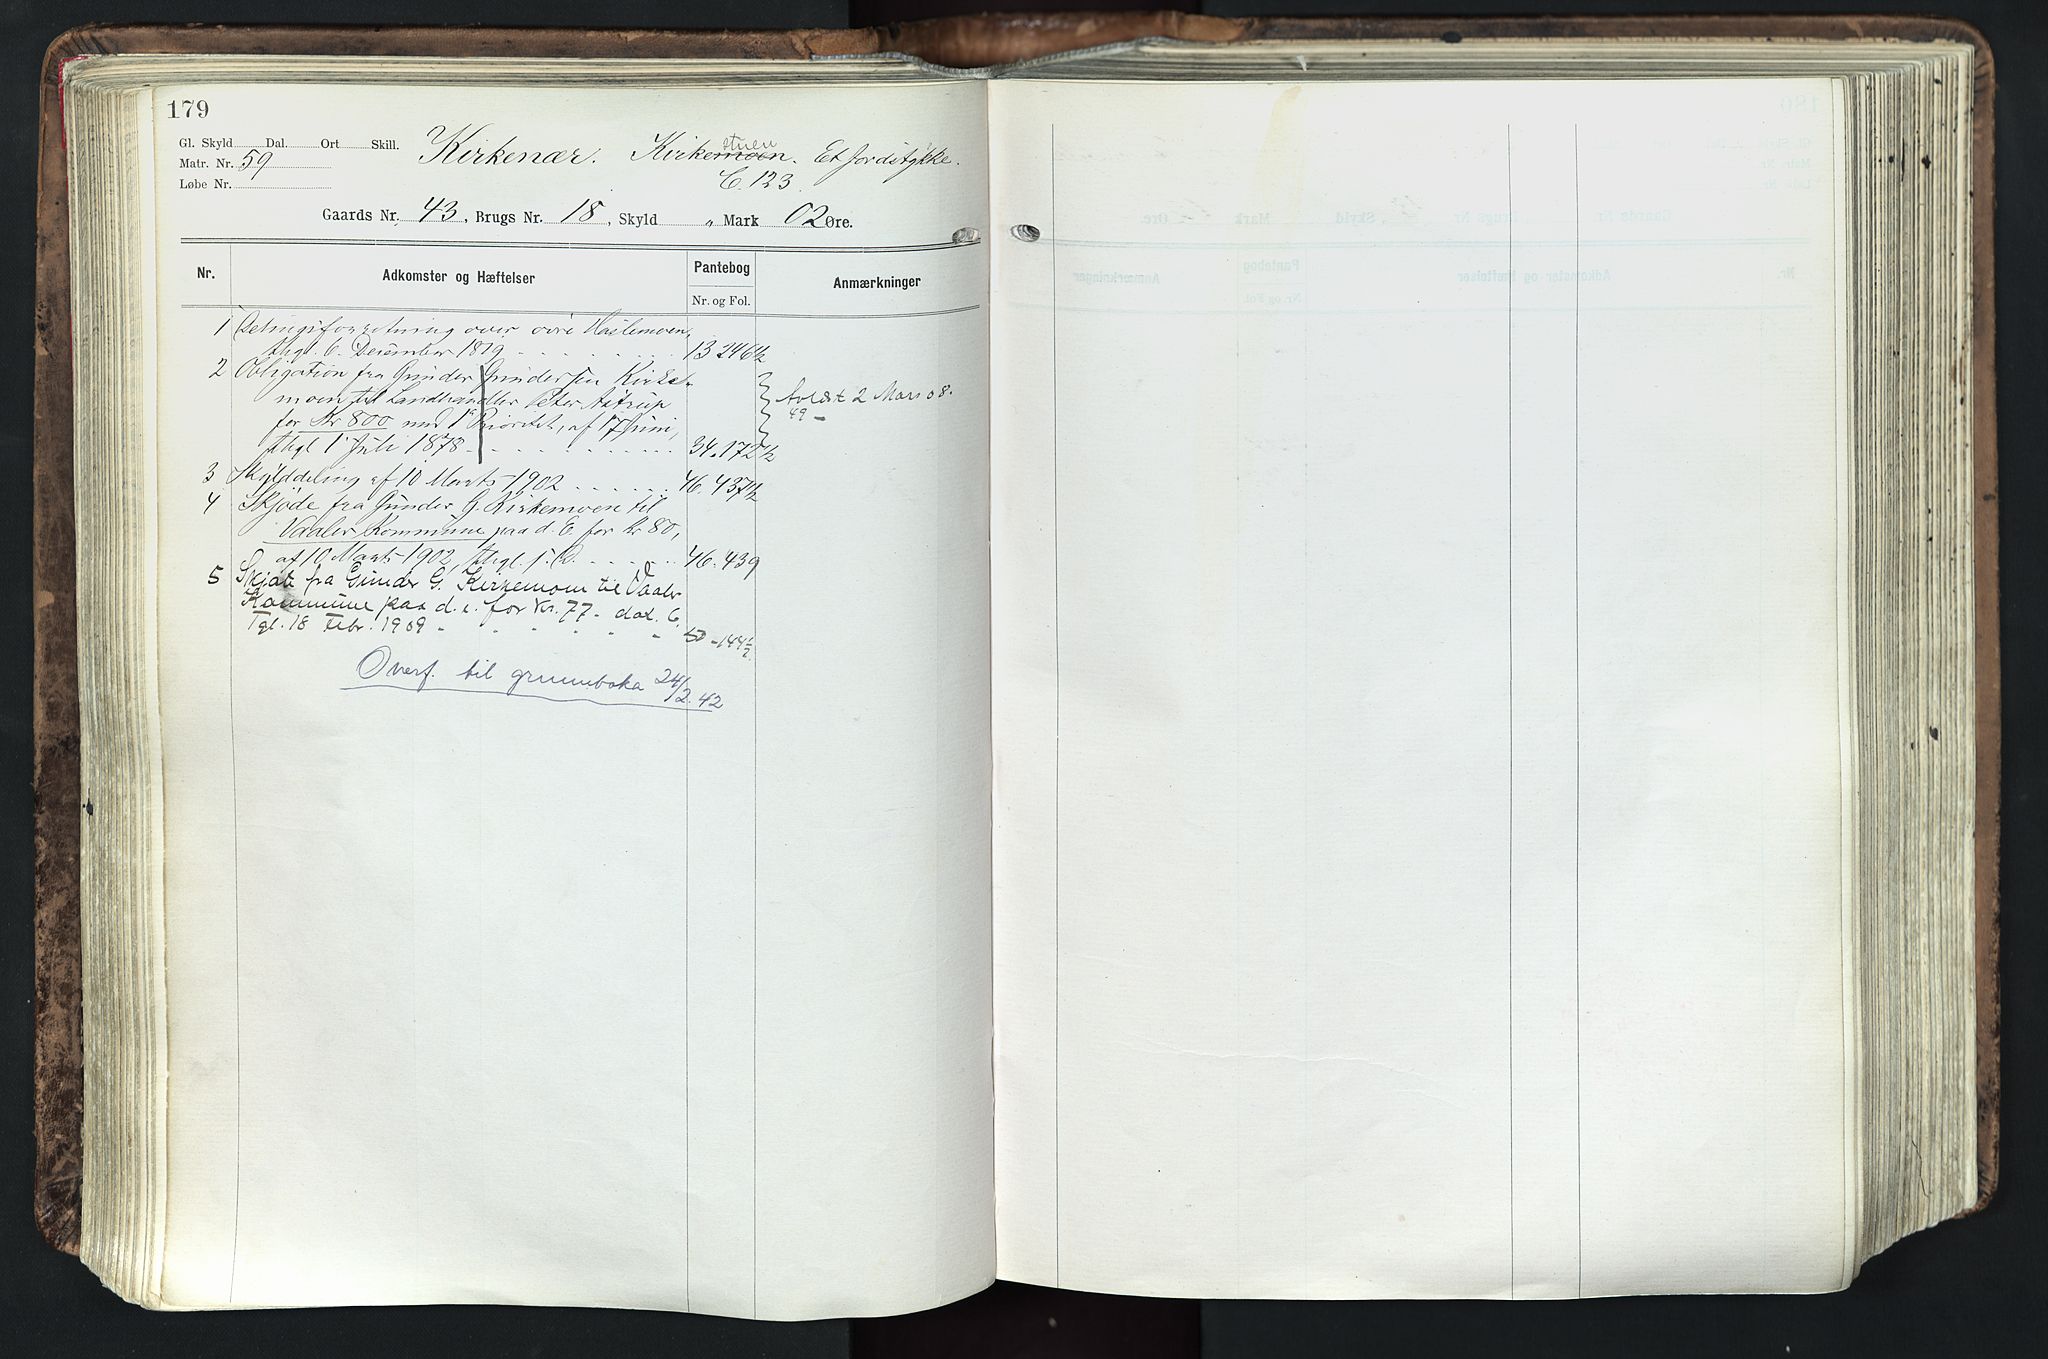 179
Gl. Skyld Dal. Ort Skill.
Matr. Nr. 59
Løbe Nr.
Kirkenær. Kirkemoen. Et Jordstykke.
stuen
C. 123
Gaards Nr. 43, Brugs Nr. 18, Skyld " Mark 02 Øre.
Nr. Adkomster og Hæftelser Pantebog Anmærkninger
Nr. og Fol.
1 Delingsforretning over øvre Haslemoen,
thgl. 6. December 1819 13 246½
2 Obligation fra Gunder Gundersen Kirke-
moen til Landhandler Peter Astrup
for Kr 800 med 1ste Prioritet, af 17 Juni,
thgl 1 Juli 1878 34.172½
Avlæst 2 Mars 08.
49 -
3 Skylddeling af 10 Marts 1902 46.437½
4 Skjøde fra Gunder G. Kirkemoen til
Vaaler Kommune paa d. E. for Kr 80,
af 10 Marts 1902, thgl. s. D. 46.439
5 Skjøte fra Gunder G. Kirkemoen til Vaaler
Kommune paa d. e. for Kr. 77 - dat. 6,
Tgl. 18 Febr. 1909 50-144½.
Overf. til grunnboka 24/2.42